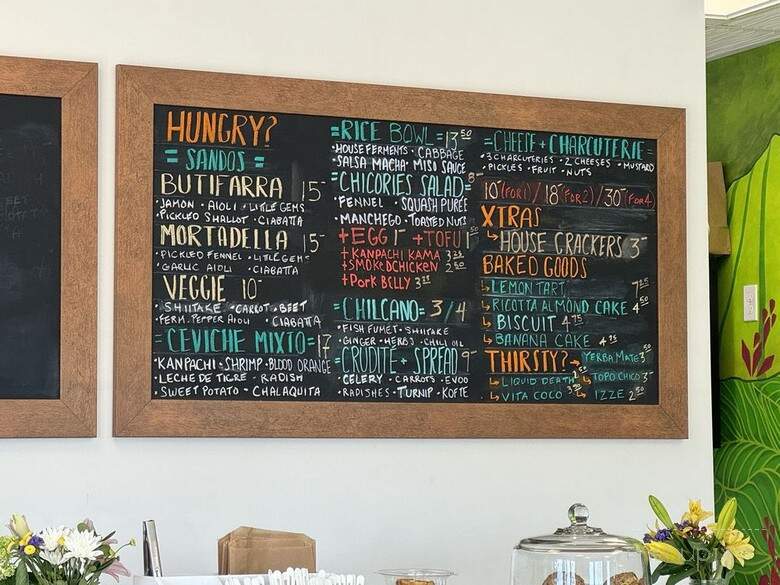 HUNGRY?
= SANDOS =
BUTIFARRA 15
• JAMON • AIOLI • LITTLE GEMS
• PICKLED SHALLOT • CIABATTA
MORTADELLA 15
• PICKLED FENNEL • LITTLE GEMS
• GARLIC AIOLI • CIABATTA
VEGGIE 10
• SHIITAKE • CARROT • BEET
• FERM. PEPPER AIOLI • CIABATTA
= CEVICHE MIXTO = 17
• KANPACHI • SHRIMP • BLOOD ORANGE
• LECHE DE TIGRE • RADISH
• SWEET POTATO • CHALAQUITA
= RICE BOWL = 13.50
• HOUSE FERMENTS • CABBAGE
• SALSA MACHA • MISO SAUCE
= CHICORIES SALAD = 8
• FENNEL • SQUASH PURÉE
• MANCHEGO • TOASTED NUTS
+ EGG 1 + TOFU 1.50
+ KANPACHI KAMA
+ SMOKED CHICKEN 2.50
+ PORK BELLY 3.25
= CHILCANO = 3/4
• FISH FUMET • SHIITAKE
• GINGER • HERBS • CHILI OIL
= CRUDITE + SPREAD 9
• CELERY • CARROTS • EVOO
• RADISHES • TURNIP • KOFTE
= CHEESE + CHARCUTERIE =
• 3 CHARCUTERIES • 2 CHEESES • MUSTARD
• PICKLES • FRUIT • NUTS
10 (FOR 1) / 18 (FOR 2) / 30 (FOR 4)
XTRAS
HOUSE CRACKERS 3
BAKED GOODS
LEMON TART 7.25
RICOTTA ALMOND CAKE 4.50
BISCUIT 4.75
BANANA CAKE 4.25
THIRSTY? YERBA MATE 3.50
LIQUID DEATH 2 TOPO CHICO 3
VITA COCO 3.50 IZZE 2.50